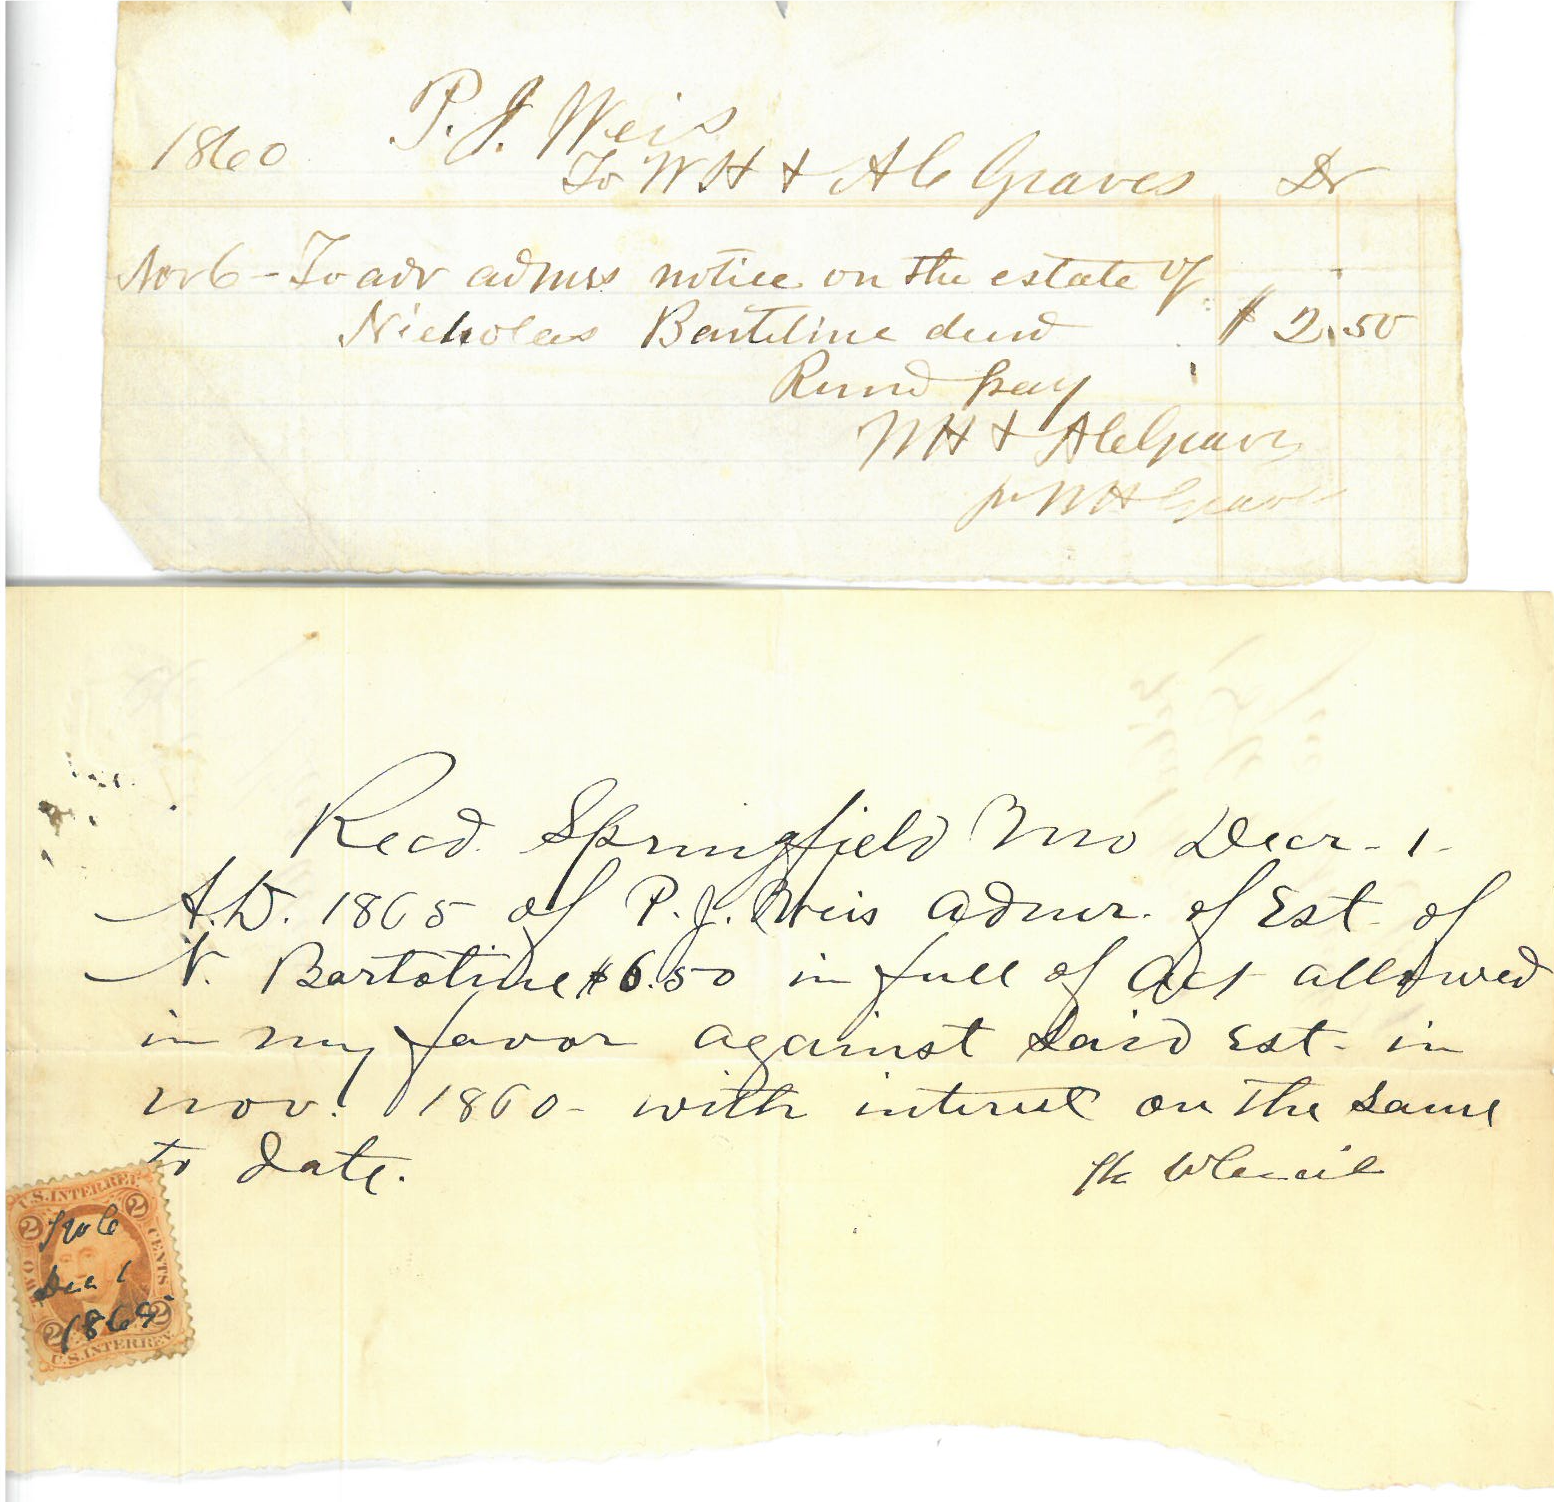 P. J. Weis
1860 To W H & A C Graves Dr
Nov 6 - To adv admrs notice on the estate of
Nicholas Bartiline decd $ 2.50
Recd pay
W H & A C Graves
pr W H Graves
Recd. Springfield Mo Decr - 1 -
A.D. 1865 of P. J. Weis admr. of Est. of
N. Bartotine $6.50 in full of act allowed
in my favor against said Est. in
nov. 1860 - with interest on the same
to date.
U.S. INTER. REV.
2 2
TWO CENTS
Dec 1
1865
2 2
U.S. INTER. REV.